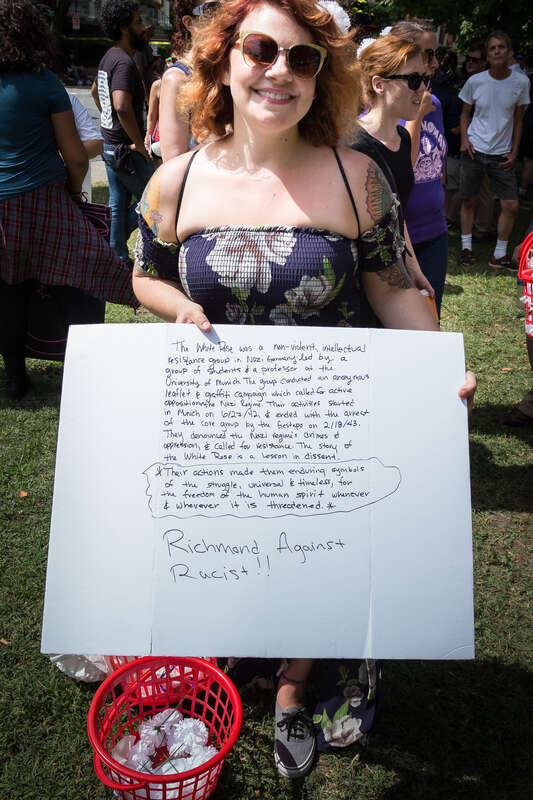 The White Rose was a non-violent, intellectual
resistance group in Nazi Germany led by a
group of students & a professor at the
University of Munich. The group conducted an anonymous
leaflet & graffiti campaign which called for active
opposition the Nazi Regime. Their activities started
in Munich on 6/27/42, & ended with the arrest
of the core group by the Gestapo on 2/18/43.
They denounced the Nazi regime's crimes &
oppression, & called for resistance. The story of
the White Rose is a Lesson in dissent.
*Their actions made them enduring symbols
of the struggle, universal & timeless, for
the freedom of the human spirit whenever
& wherever it is threatened.*
Richmond Against
Racist!!